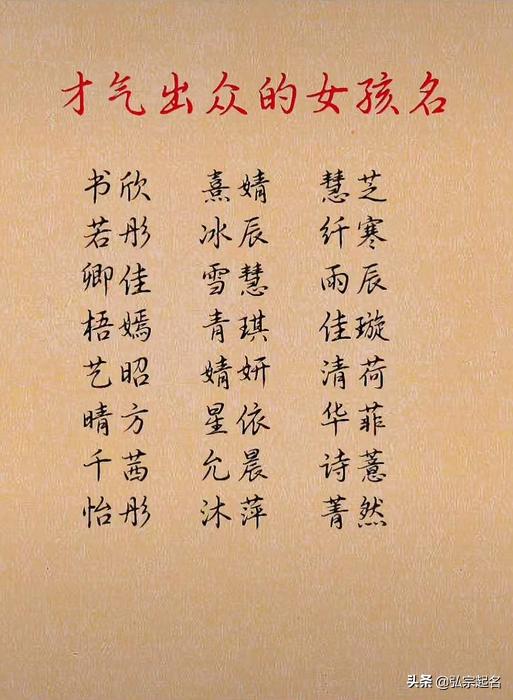 才气出众的女孩名
书欣 熹婧 慧芝
若彤 冰辰 纤寒
卿佳 雪慧 雨辰
梧嫣 青琪 佳璇
艺昭 婧妍 清荷
晴方 星依 华菲
千茜 允晨 诗薏
怡彤 沐萍 菁然
头条 @弘宗起名